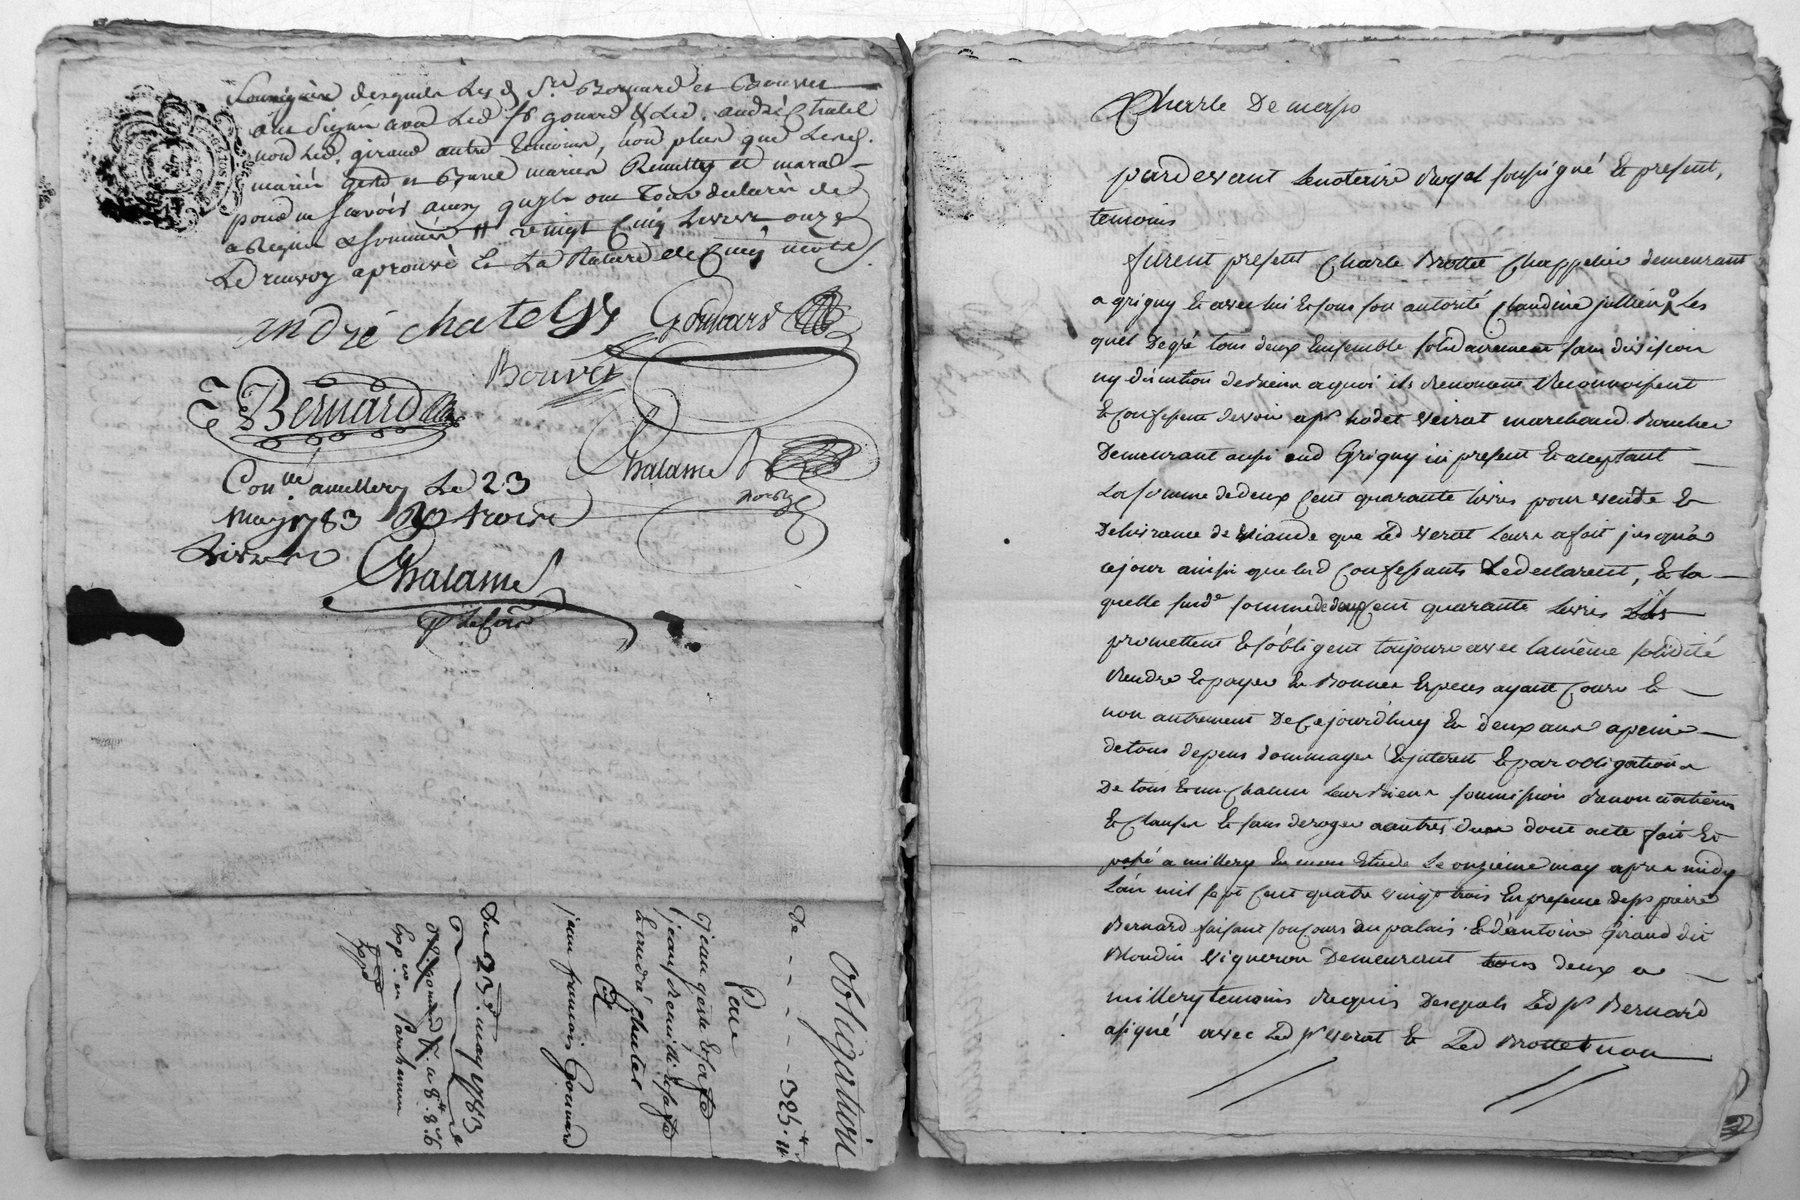 desquels Les d. Srs Bernard et Bouvet
ont Signé avec Led. Sr gouard & Led. andré Chatel
non Led. giraud autre temoins, non plus que Lesd.
mariés geste et
pour ne sçavoir ainsy qu'ils ont Tous declaré de
vingt Cinq Livres onze
Le renvoy aprouvé Et La Rature de Cinq mots
andré chatel
Gouuard
Bouvet
Bernard
Chalamel
Conllé amillery Le 23
may 1783 R trois
Livres
Chalamel
obligation
De - - - - - 325.
Par
jean geste Efafe
jean Remillie efafe
& andré Chatel
a
jean francois Gouuard
Du 23. may 1783
Exp. en Parchemin
Charle Demaso
pardevant Le notaire Royal soussigné Et present,
temoins
furent present Charle Brottet Chappelier demeurant
a grigny & avec lui & sous son autorité Claudine jullien Les
quel De gré tous deux Ensemble solidairement sans division
ny discution de biens a quoi ils renoncent Reconnoissent
& Confessent devoir a sr hodet veirat marchand Boucher
Demeurant aussi aud Grigny ici present & acceptant
La somme de deux Cent quarante livres pour vente &
Delivrance de viande que Led verat Leurs a fait jusqu'a
cejour ainsi que lesd Confessants Le declarent, & la
quelle susde somme de deux Cent quarante Livres Ils
promettent & s'obligent toujours avec la même solidité
Rendre & payer En Bonnes Especes ayant Cours &
non autrement De Cejourd'huy En deux ans a peine
de tous depens dommages & interest & par obligation
De tous & un Chacun leurs biens soumission Renonciations
& Clauses & sans deroger a autres dues dont acte fait &
passé a millery En mon Etude Le onzieme may apres midy
L'an mil sept Cent quatre vingt trois En presence de sr pierre
Bernard faisant son Cours du palais & d'antoine Giraud dit
Blondin vigneron Demeurant tous deux a
millery temoins Requis Desquels Led sr Bernard
a signé avec Led sr verat & Led Brottet non